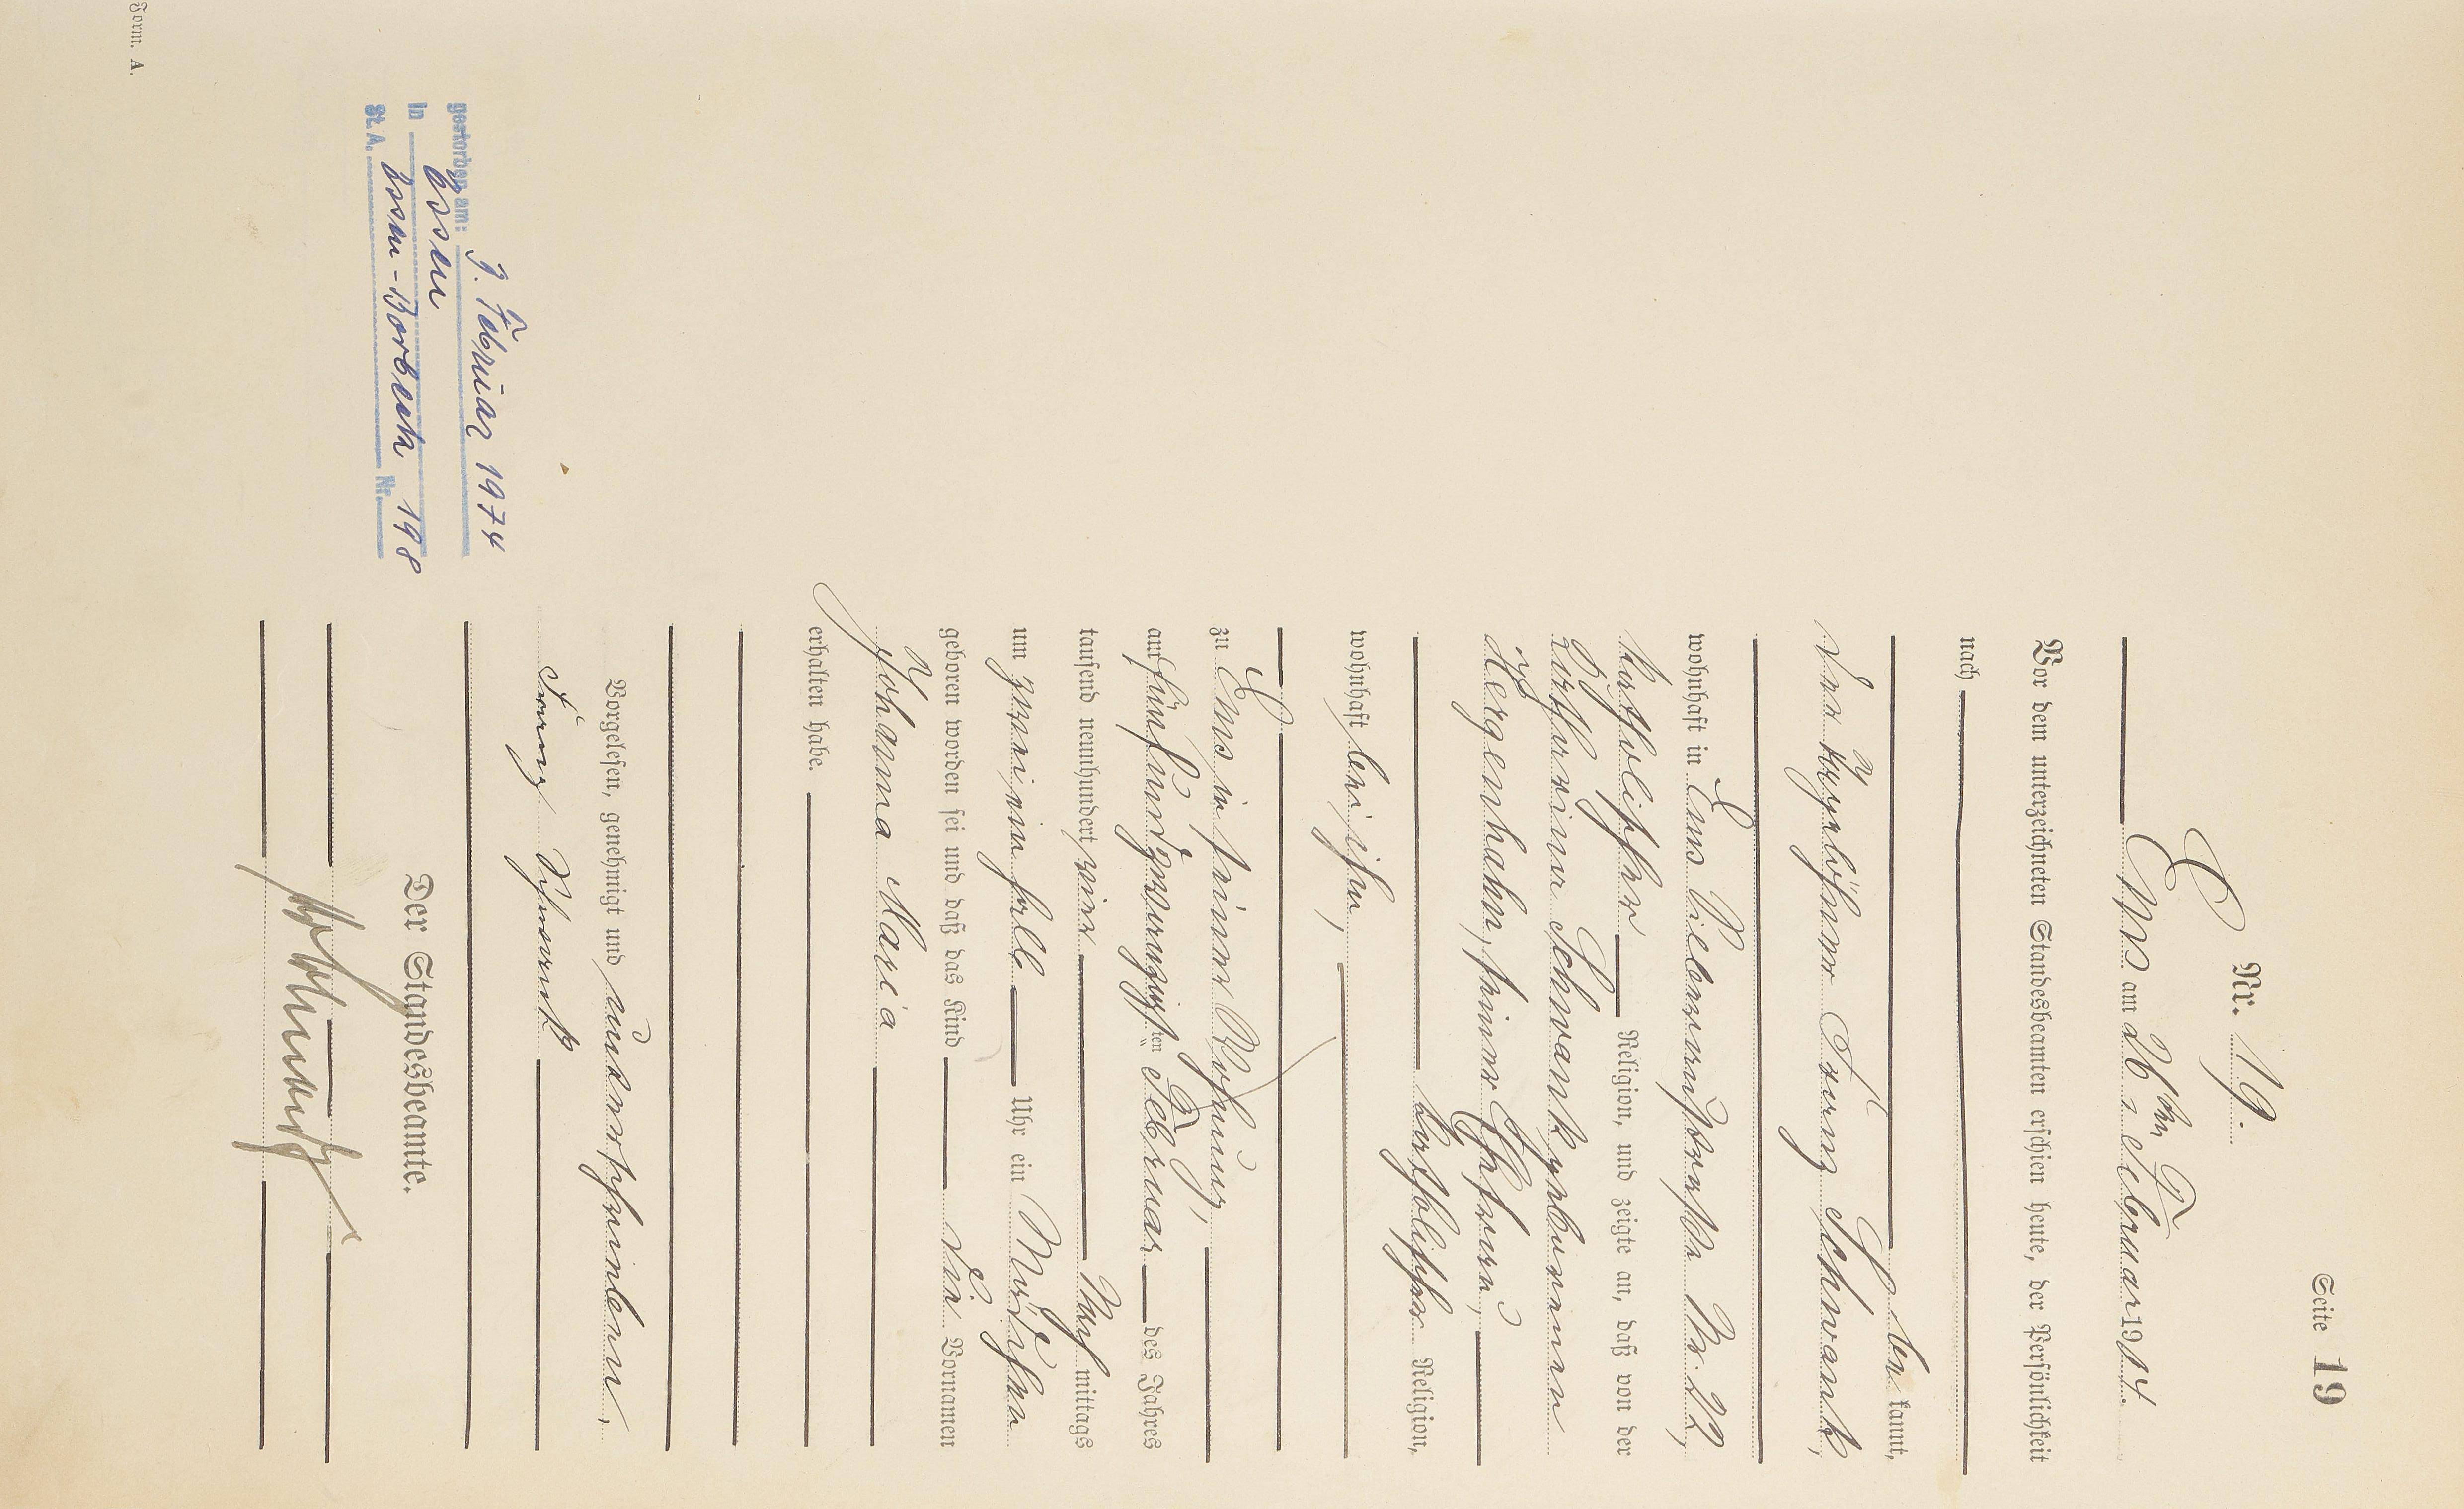 Seite 19
Nr. 19.
Ems am 26ten Februar 1904.
Vor dem unterzeichneten Standesbeamten erschien heute, der Persönlichkeit
nach
be kannt,
der Tagelöhner Franz Schwank,
wohnhaft in Ems Silberaustraße Nr. 22,
katholischer Religion, und zeigte an, daß von der
Katharina Schwank geborenen
Hergenhahn, seiner Ehefrau,
katholischer Religion,
wohnhaft bei ihm,
zu Ems in seiner Wohnung,
am fünfundzwanzigsten Februar des Jahres
tausend neunhundert vier Nach mittags
um zwei ein halb Uhr ein Mädchen
geboren worden sei und daß das Kind die Vornamen
Johanna Maria
erhalten habe.
Vorgelesen, genehmigt und unterschrieben.
Franz Schwank
Der Standesbeamte.
gestorben am: 9. Februar 1974
in Essen
St. A. Essen-Borbeck Nr. 198
Form. A.